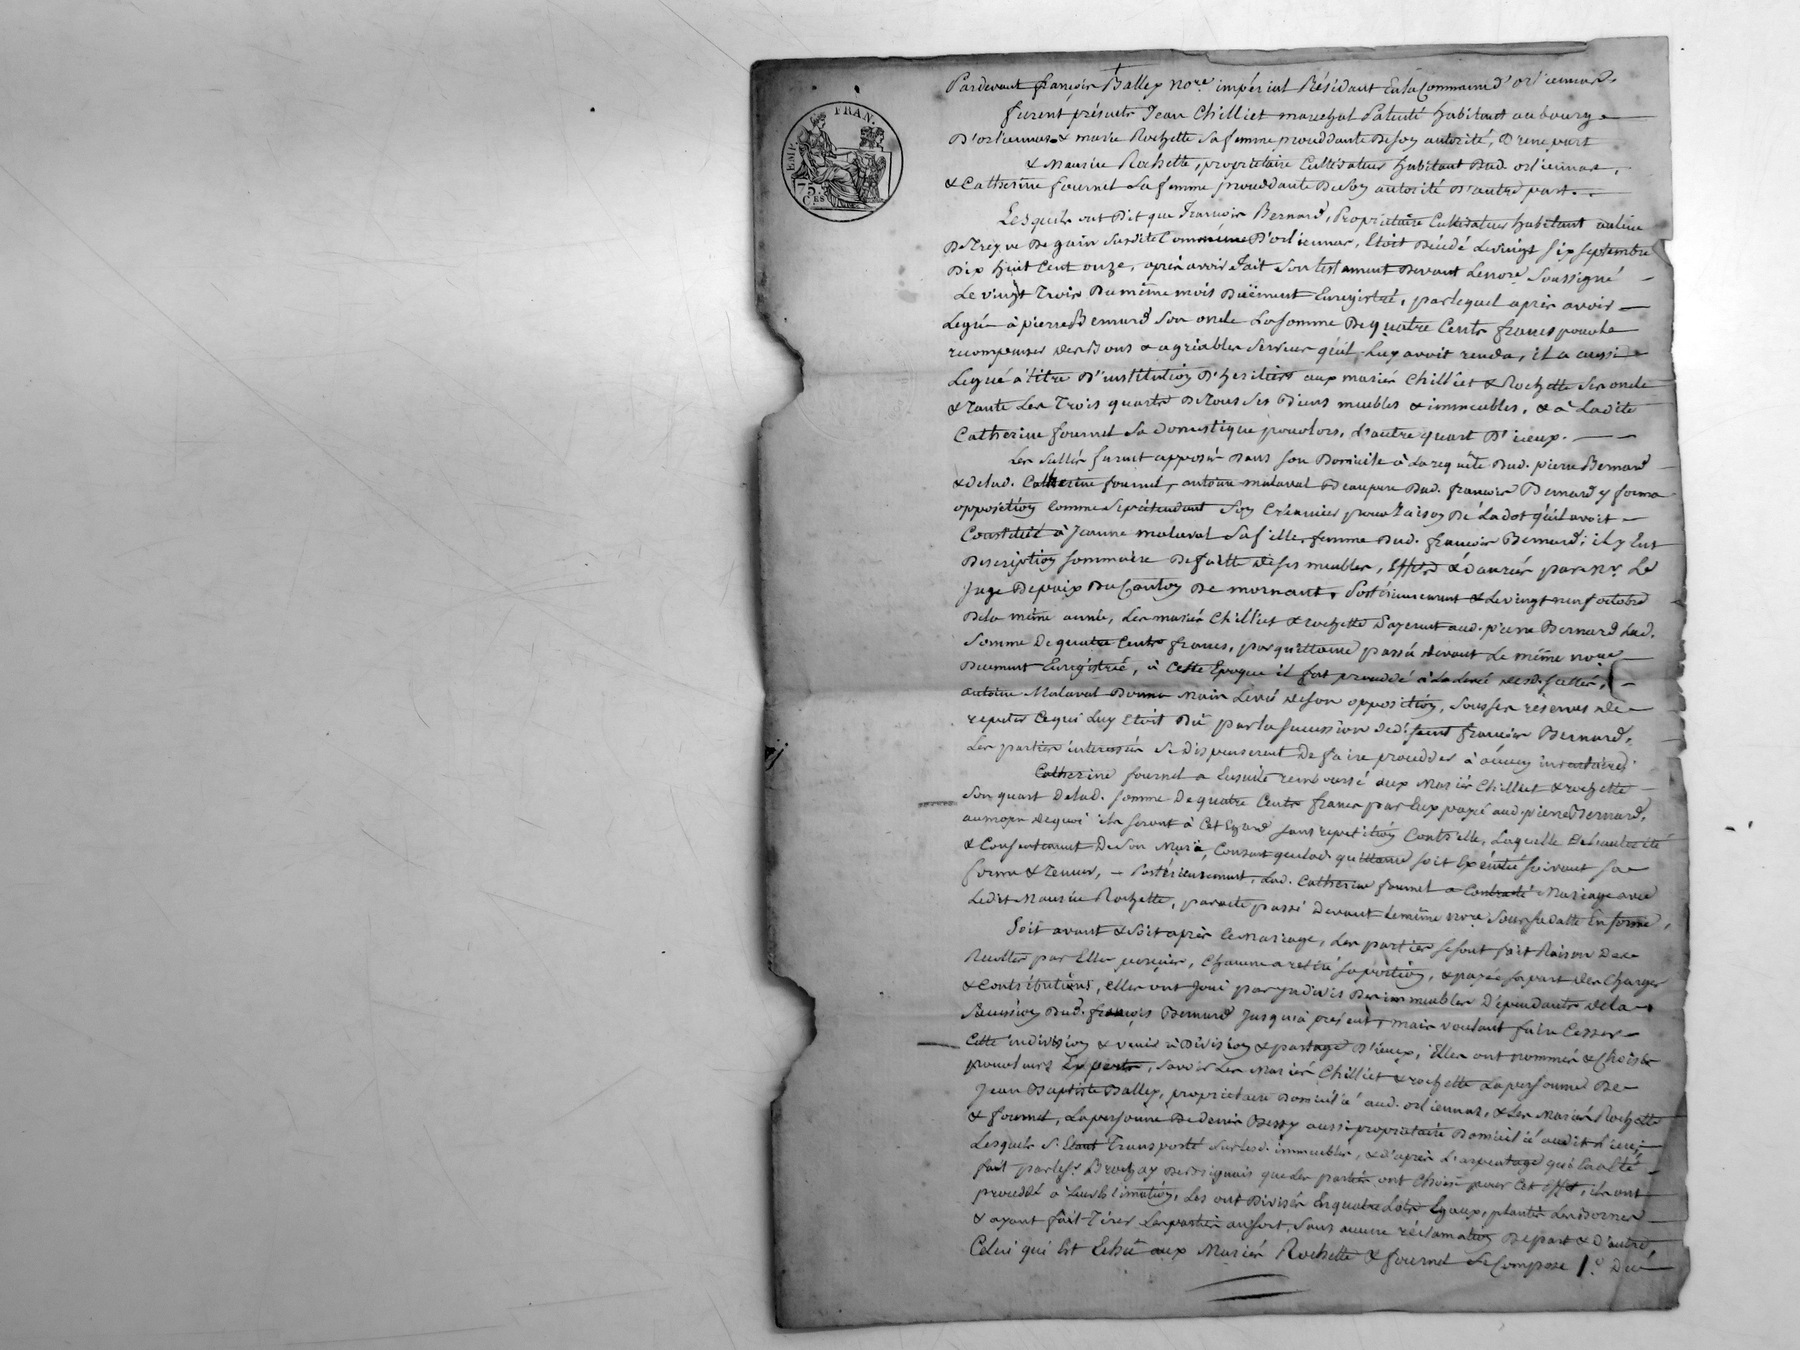 EMP. FRAN.
75.
C.ES
Pardevant françois Balley no.re impérial Résidant En la Commune d'orliennas
furent présents Jean Chilliet marechal Patenté habitant au bourg
D'orliennas & marie Rochette sa femme procédante De son autorité, D'une part
& Maurice Rochette, propriétaire Cultivateur habitant Dud. orliennas,
& Catherine fournel sa femme procédante De son autorité D'autre part.
Lesquels ont Dit que françois Bernard, Propriétaire Cultivateur habitant au lieu
De susdite Commune D'orliennas, Etoit Décédé Le vingt six septembre
Dix huit Cent onze, après avoir fait son testament Devant Le no.re soussigné
Le vingt Trois Du même mois Duëment Enregistré, par lequel après avoir
Legué à pierre Bernard son oncle La somme De quatre Cents francs pour le
recompenser des Bons & agréables services qu'il Luy avoit rendu, il a aussi
Legué à titre D'institution D'heritiers aux mariés Chilliet & Rochette ses oncle
& Tante Les Trois quarts De Tous ses Biens meubles & immeubles, & à Ladite
Catherine fournel sa Domestique pour lors, L'autre quart D'iceux.
Les scellés furent apposés Dans son Domicile à La requête Dud. pierre Bernard
& de lad. Catherine fournel, antoine malaval Beaupere Dud. françois Bernard y forma
opposition Comme se prétendant son Créancier pour raison De La dot qu'il avoit
Constitué à Jeanne malaval sa fille, femme Dud. françois Bernard; il y Eut
Description sommaire De faitte de ses meubles, Effets & Danrées par Mr. Le
Juge De paix Du Canton De mornant, Postérieurement & Le vingt neuf octobre
De la même année, Les mariés Chilliet & rochette Payerent aud. pierre Bernard Lad.
somme De quatre Cents francs, par quittance passée devant Le même no.re
Duement Enregistrée, à Cette Epoque il fut procédé à La Levée desd. scellés,
antoine Malaval Donna Main Levée de son opposition, sous les réserves de
repeter Ce qui Luy Etoit Dû par la succession dud. françois Bernard,
Les parties interessées se Dispenserent De faire proceder à aucun inventaire,
Catherine fournel a Ensuite remboursé aux Mariés Chilliet & rochette
son quart de lad. somme De quatre Cents francs par Eux payée aud. pierre Bernard,
au moyen de quoi ils seront à Cet Egard sans repetition Contr'elle, Laquelle De l'autorité
& Consentement De son Mari, Consent que lad. quittance soit Exécutée suivant sa
forme & Teneur, – Postérieurement, Lad. Catherine fournel a Contracté Mariage avec
Ledit Maurice Rochette, par acte passé Devant Le même no.re sous sa datte En forme,
Soit avant & soit après Ce Mariage, Les parties se sont fait Raison Des
Recoltes par Elles perçues, Chacune a retiré sa portion, & payée sa part des Charges
& Contributions, Elles ont Joui par Indivis Des immeubles Dépendants de la
succession Dud. françois Bernard Jusqu'à présent, mais voulant faire Cesser
Cette indivision & venir à Division & partage D'iceux, Elles ont nommés & Choisis
pour leurs Experts, savoir Les Mariés Chilliet & rochette La personne De
Jean Baptiste Balley, propriétaire Domicilié aud. orliennas, & Les Mariés Rochette
& fournel, La personne De denis Bessy aussi propriétaire Domicilié audit Lieu,
Lesquels s'Etant Transporté sur lesd. immeubles, & d'après L'arpentage qui En a été
fait par le sr. Brochay De Brignais que Les parties ont Choisi pour Cet Effet, ils ont
procédé à Leur Estimation, Les ont Divisés En quatre Lots Egaux, planté Les Bornes
& ayant fait Tirer Les parties au sort, sans aucune réclamation De part & D'autre
Celui qui Est Echu aux Mariés Rochette & fournel se Compose 1.º Du